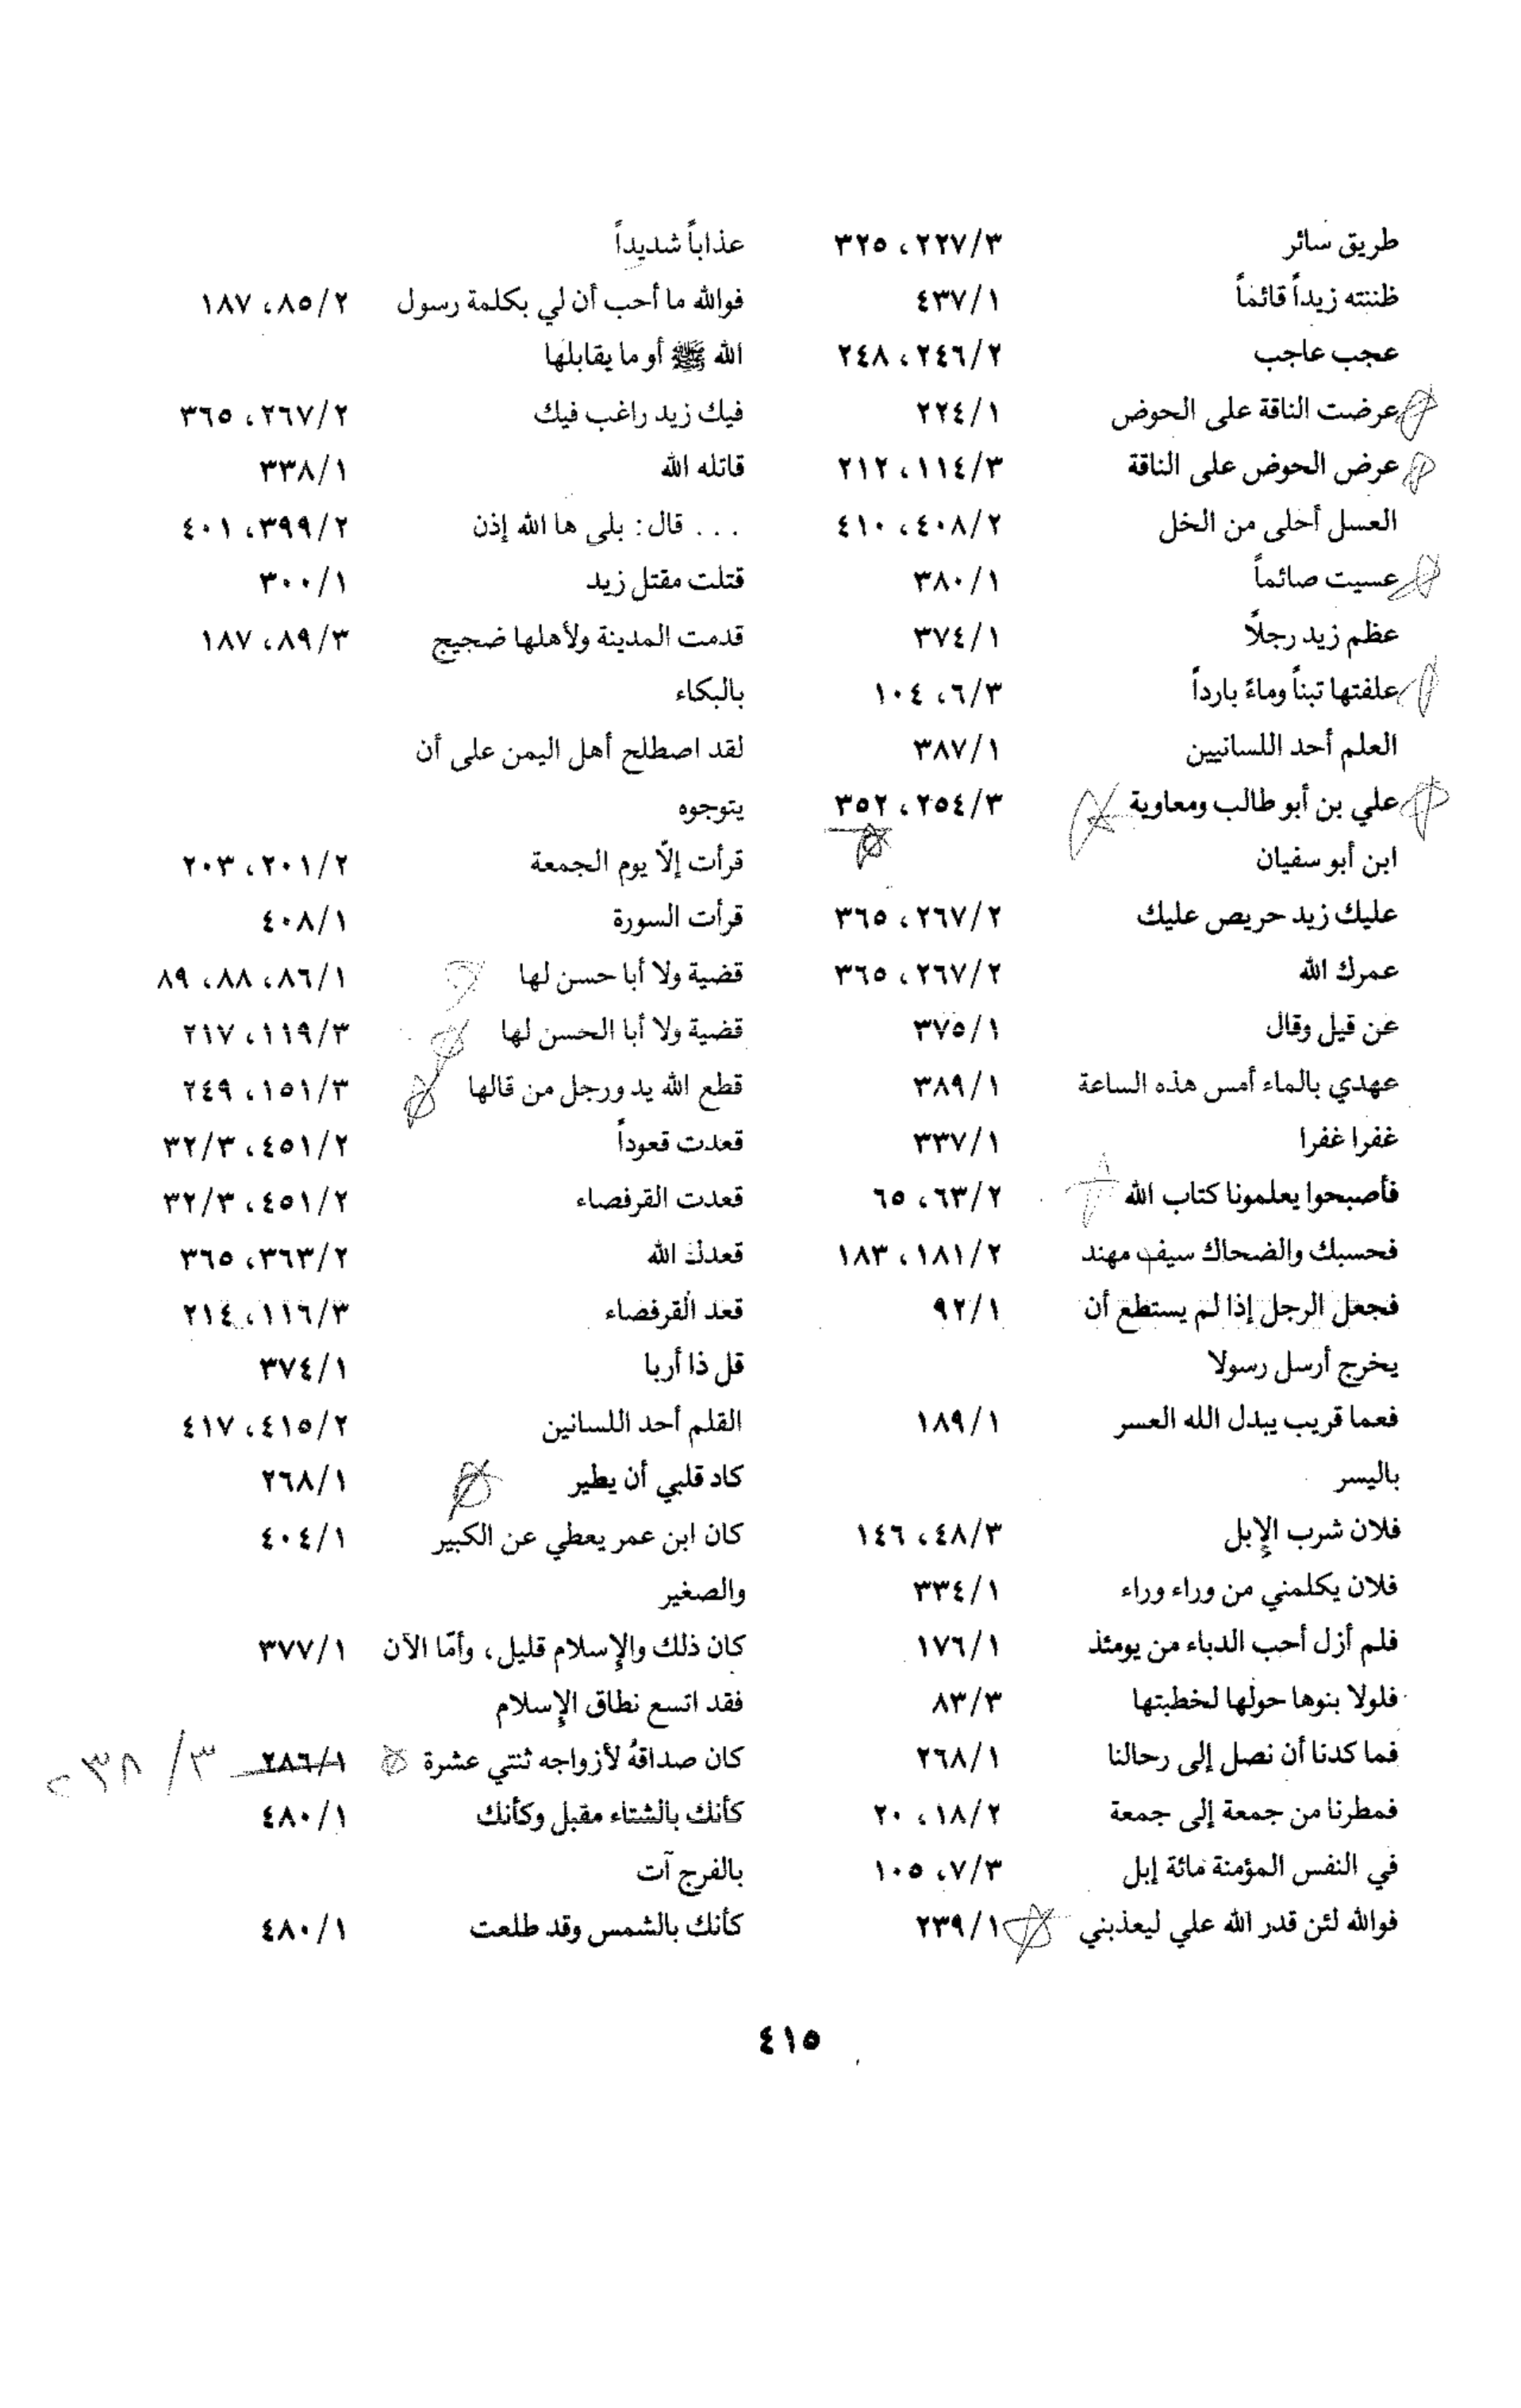 طريق سائر ٣/٢٢٧، ٣٢٥
ظننته زيداً قائماً ١/٤٣٧
عجب عاجب ٢/٢٤٦، ٢٤٨
عرضت الناقة على الحوض ١/٢٢٤
عرض الحوض على الناقة ٣/١١٤، ٢١٢
العسل أحلى من الخل ٢/٤٠٨، ٤١٠
عسيت صائماً ١/٣٨٠
عظم زيد رجلاً ١/٣٧٤
علفتها تبناً وماءً بارداً ٣/٦، ١٠٤
العلم أحد اللسانيين ١/٣٨٧
علي بن أبو طالب ومعاوية ٣/٢٥٤، ٣٥٢
ابن أبو سفيان
عليك زيد حريص عليك ٢/٢٦٧، ٣٦٥
عمرك الله ٢/٢٦٧، ٣٦٥
عن قيل وقال ١/٣٧٥
عهدي بالماء أمس هذه الساعة ١/٣٨٩
غفرا غفرا ١/٣٣٧
فأصبحوا يعلمونا كتاب الله ٢/٦٣، ٦٥
فحسبك والضحاك سيف مهند ٢/١٨١، ١٨٣
فجعل الرجل إذا لم يستطع أن ١/٩٢
يخرج أرسل رسولا
فعما قريب يبدل الله العسر ١/١٨٩
باليسر
فلان شرب الإبل ٣/٤٨، ١٤٦
فلان يكلمني من وراء وراء ١/٣٣٤
فلم أزل أحب الدباء من يومئذ ١/١٧٦
فلولا بنوها حولها لخطبتها ٣/٨٣
فما كدنا أن نصل إلى رحالنا ١/٢٦٨
فمطرنا من جمعة إلى جمعة ٢/١٨، ٢٠
في النفس المؤمنة مائة إبل ٣/٧، ١٠٥
فوالله لئن قدر الله علي ليعذبني ١/٢٣٩
عذاباً شديداً
فوالله ما أحب أن لي بكلمة رسول ٢/٨٥، ١٨٧
الله ﷺ أو ما يقابلها
فيك زيد راغب فيك ٢/٢٦٧، ٣٦٥
قاتله الله ١/٣٣٨
... قال: بلى ها الله إذن ٢/٣٩٩، ٤٠١
قتلت مقتل زيد ١/٣٠٠
قدمت المدينة ولأهلها ضجيج ٣/٨٩، ١٨٧
بالبكاء
لقد اصطلح أهل اليمن على أن
يتوجوه
قرأت إلّا يوم الجمعة ٢/٢٠١، ٢٠٣
قرأت السورة ١/٤٠٨
قضية ولا أبا حسن لها ١/٨٦، ٨٨، ٨٩
قضية ولا أبا الحسن لها ٣/١١٩، ٢١٧
قطع الله يد ورجل من قالها ٣/١٥١، ٢٤٩
قعدت قعوداً ٢/٤٥١، ٣/٣٢
قعدت القرفصاء ٢/٤٥١، ٣/٣٢
قعدك الله ٢/٣٦٣، ٣٦٥
قعد القرفصاء ٣/١١٦، ٢١٤
قل ذا أربا ١/٣٧٤
القلم أحد اللسانين ٢/٤١٥، ٤١٧
كاد قلبي أن يطير ١/٢٦٨
كان ابن عمر يعطي عن الكبير ١/٤٠٤
والصغير
كان ذلك والإسلام قليل، وأمّا الآن ١/٣٧٧
فقد اتسع نطاق الإسلام
كان صداقهُ لأزواجه ثنتي عشرة ١/٢٨٦ ٣/٢٣٨
كأنك بالشتاء مقبل وكأنك ١/٤٨٠
بالفرج آت
كأنك بالشمس وقد طلعت ١/٤٨٠
٤١٥